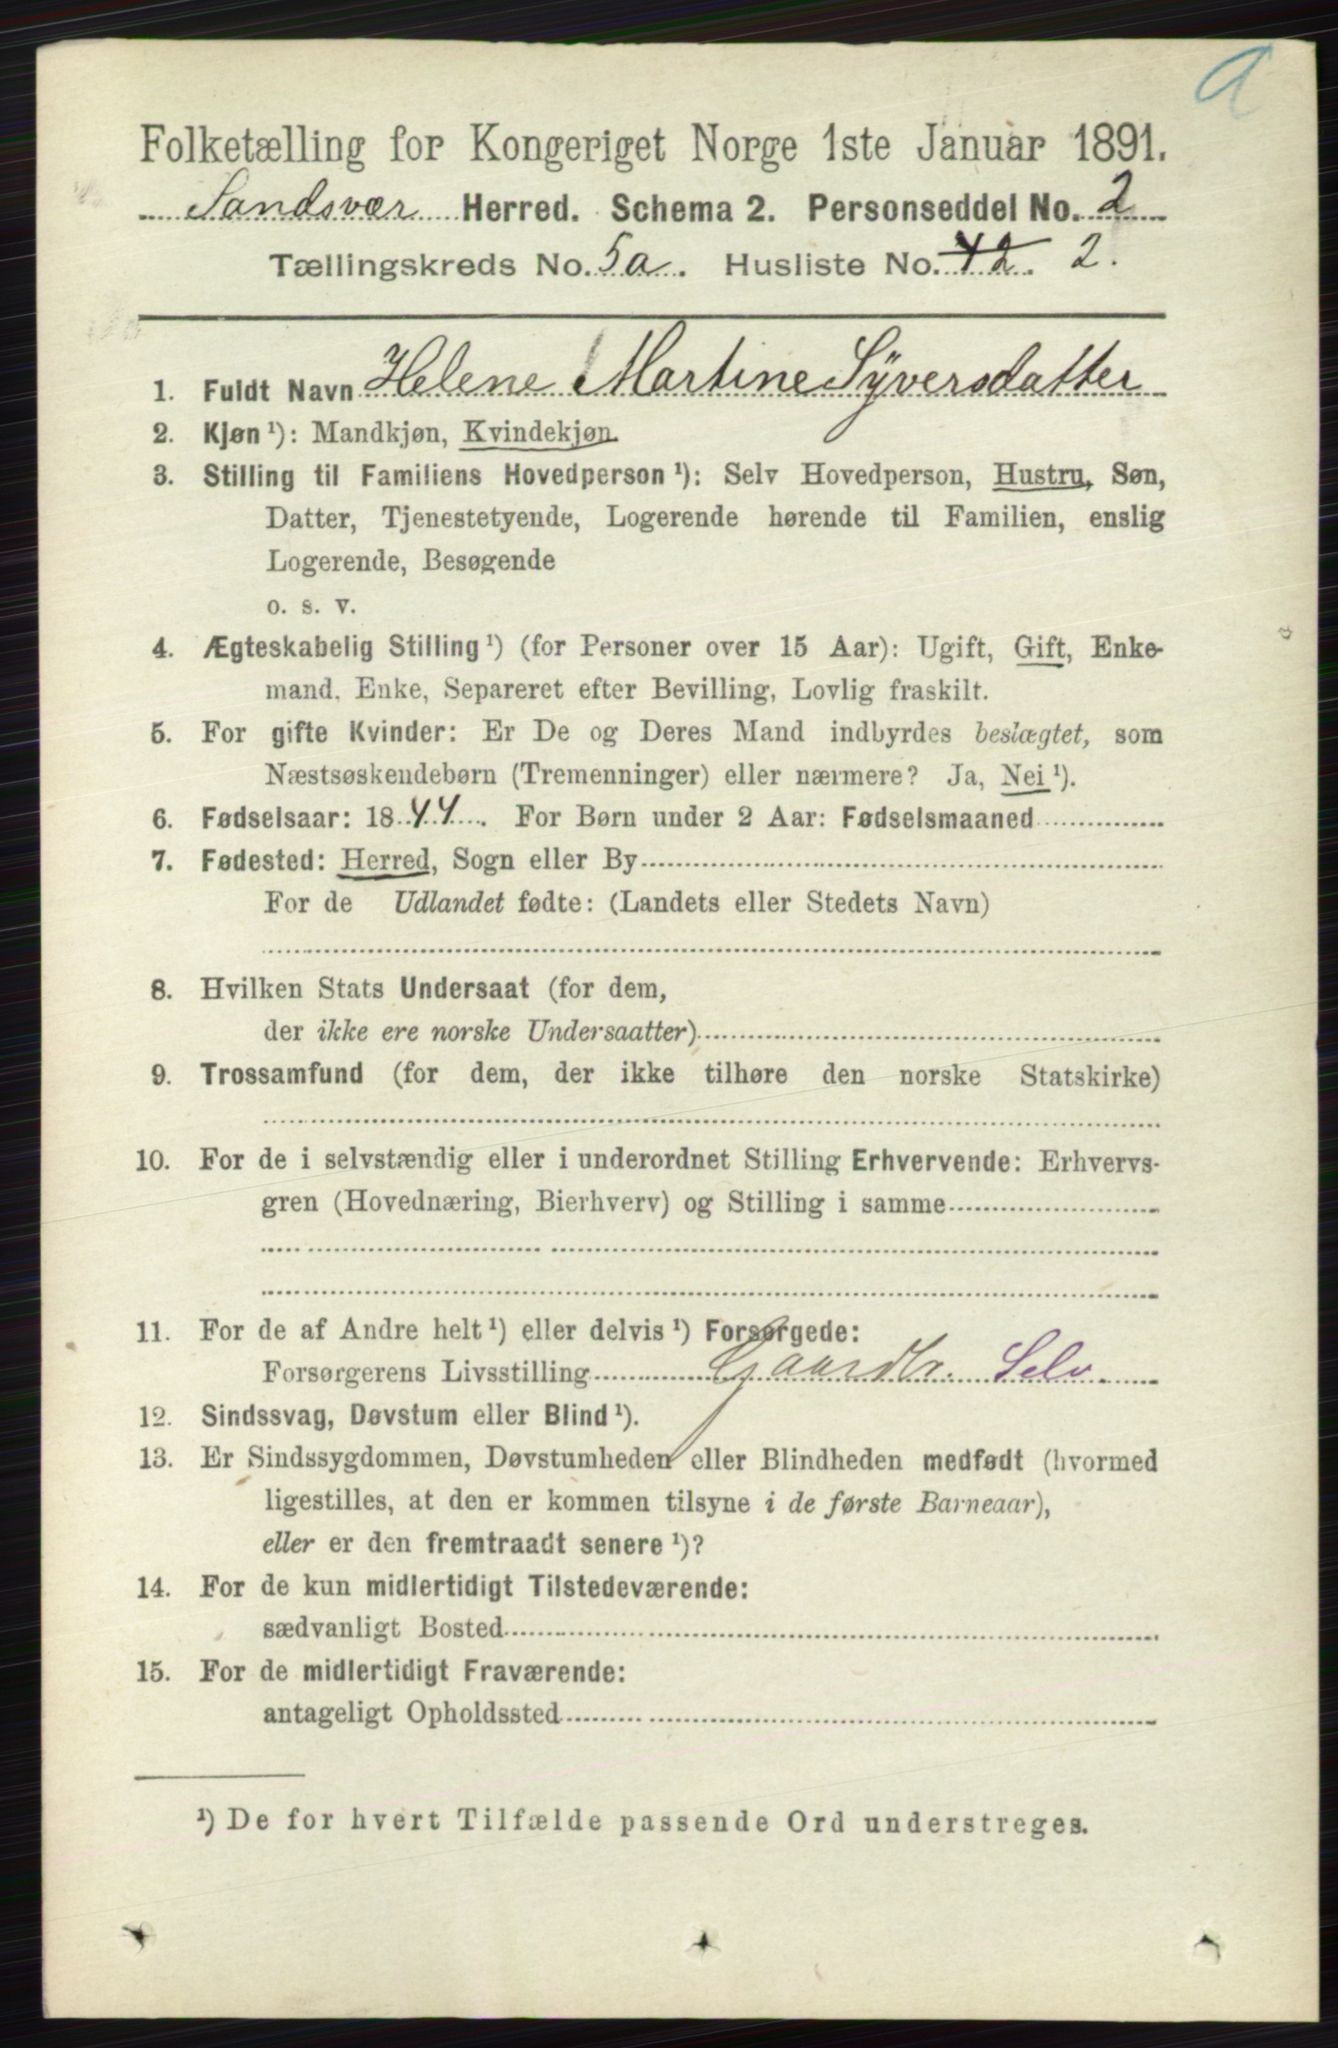 a
Folketælling for Kongeriget Norge 1ste Januar 1891.
Sandsvær Herred. Schema 2. Personseddel No. 2
Tællingskreds No. 5a. Husliste No. 42. 2.
1. Fuldt Navn Helene Martine Syversdatter
2. Kjøn ¹): Mandkjøn, Kvindekjøn.
3. Stilling til Familiens Hovedperson ¹): Selv Hovedperson, Hustru, Søn,
Datter, Tjenestetyende, Logerende hørende til Familien, enslig
Logerende, Besøgende
o. s. v.
4. Ægteskabelig Stilling ¹) (for Personer over 15 Aar): Ugift, Gift, Enke-
mand, Enke, Separeret efter Bevilling, Lovlig fraskilt.
5. For gifte Kvinder: Er De og Deres Mand indbyrdes beslægtet, som
Næstsøskendebørn (Tremenninger) eller nærmere? Ja, Nei ¹).
6. Fødselsaar: 1844. For Børn under 2 Aar: Fødselsmaaned
7. Fødested: Herred, Sogn eller By
For de Udlandet fødte: (Landets eller Stedets Navn)
8. Hvilken Stats Undersaat (for dem,
der ikke ere norske Undersaatter)
9. Trossamfund (for dem, der ikke tilhøre den norske Statskirke)
10. For de i selvstændig eller i underordnet Stilling Erhvervende: Erhvervs-
gren (Hovednæring, Bierhverv) og Stilling i samme
11. For de af Andre helt ¹) eller delvis ¹) Forsørgede:
Forsørgerens Livsstilling Gaardbr. Selv.
12. Sindssvag, Døvstum eller Blind ¹).
13. Er Sindssygdommen, Døvstumheden eller Blindheden medfødt (hvormed
ligestilles, at den er kommen tilsyne i de første Barneaar),
eller er den fremtraadt senere ¹)?
14. For de kun midlertidigt Tilstedeværende:
sædvanligt Bosted
15. For de midlertidigt Fraværende:
antageligt Opholdssted
¹) De for hvert Tilfælde passende Ord understreges.